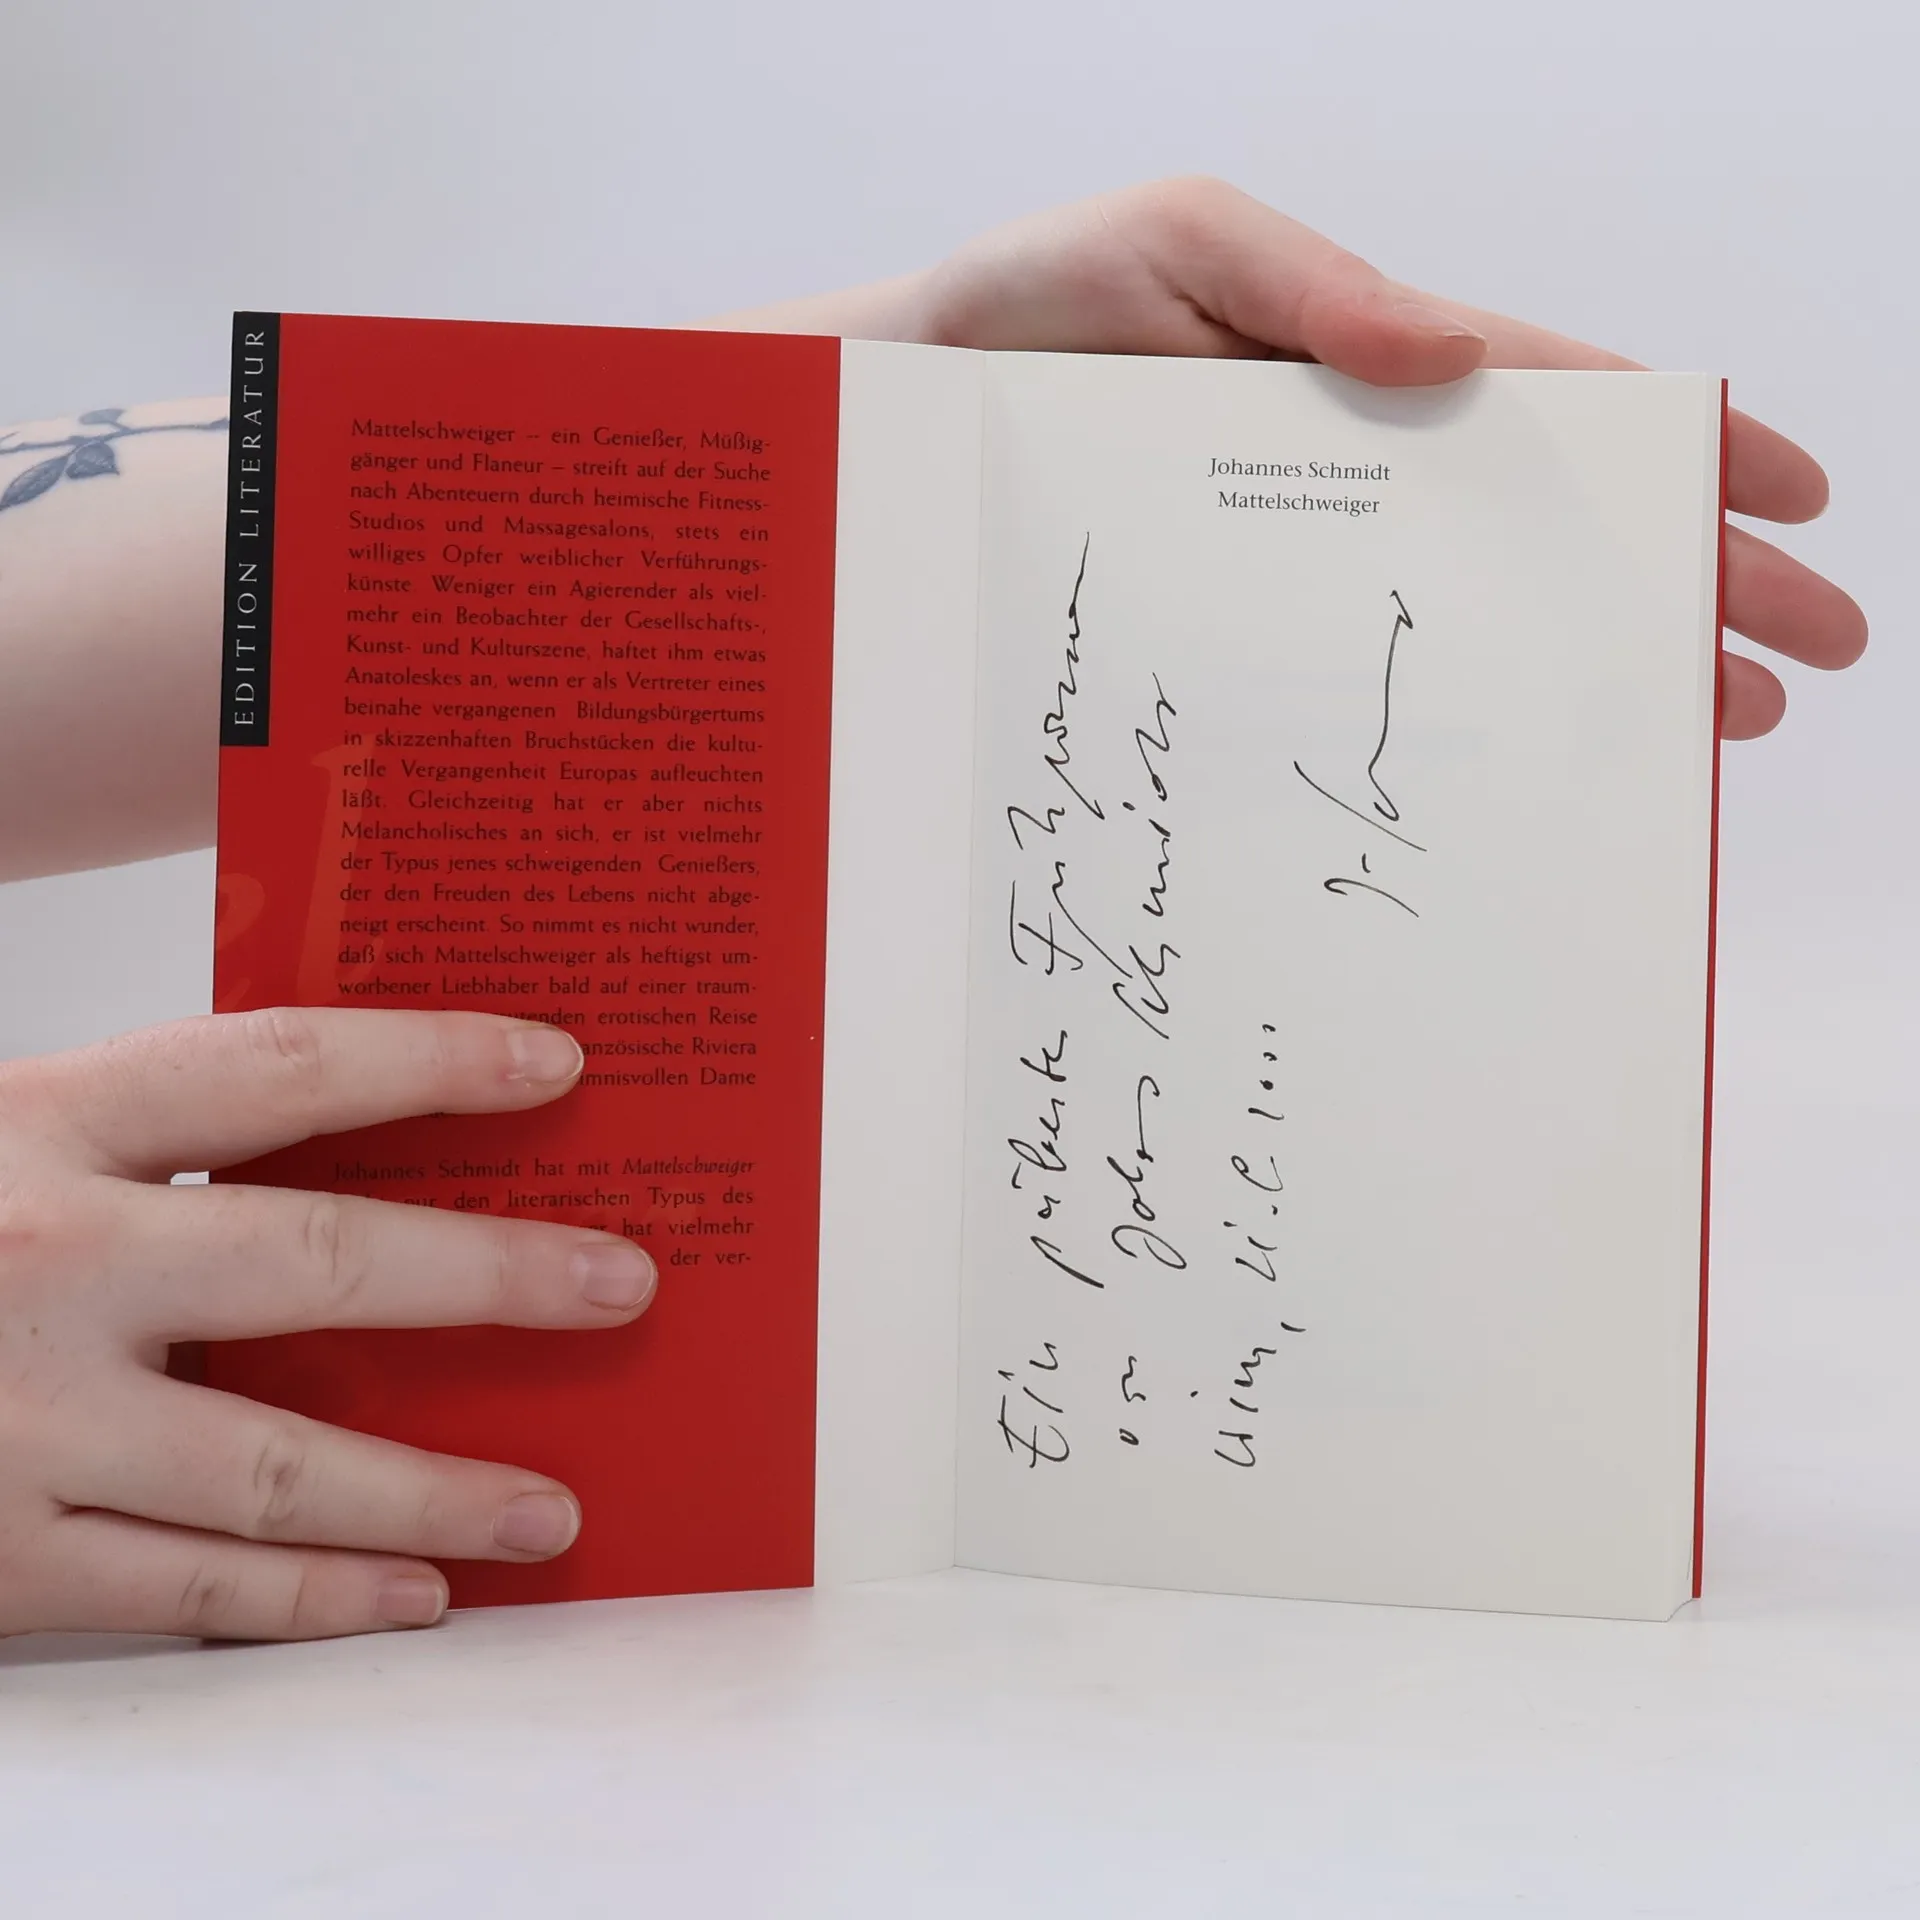 EDITION LITERATUR
Mattelschweiger – ein Genießer, Müßig-
gänger und Flaneur – streift auf der Suche
nach Abenteuern durch heimische Fitness-
Studios und Massagesalons, stets ein
williges Opfer weiblicher Verführungs-
künste. Weniger ein Agierender als viel-
mehr ein Beobachter der Gesellschafts-,
Kunst- und Kulturszene, haftet ihm etwas
Anatoleskes an, wenn er als Vertreter eines
beinahe vergangenen Bildungsbürgertums
in skizzenhaften Bruchstücken die kultu-
relle Vergangenheit Europas aufleuchten
läßt. Gleichzeitig hat er aber nichts
Melancholisches an sich, er ist vielmehr
der Typus jenes schweigenden Genießers,
der den Freuden des Lebens nicht abge-
neigt erscheint. So nimmt es nicht wunder,
daß sich Mattelschweiger als heftigst um-
worbener Liebhaber bald auf einer traum-
erotischen Reise
Riviera
Dame
Johannes Schmidt hat mit Mattelschweiger
nur den literarischen Typus des
hat vielmehr
der ver-
Johannes Schmidt
Mattelschweiger
Ein
von Schmidt
Wien,